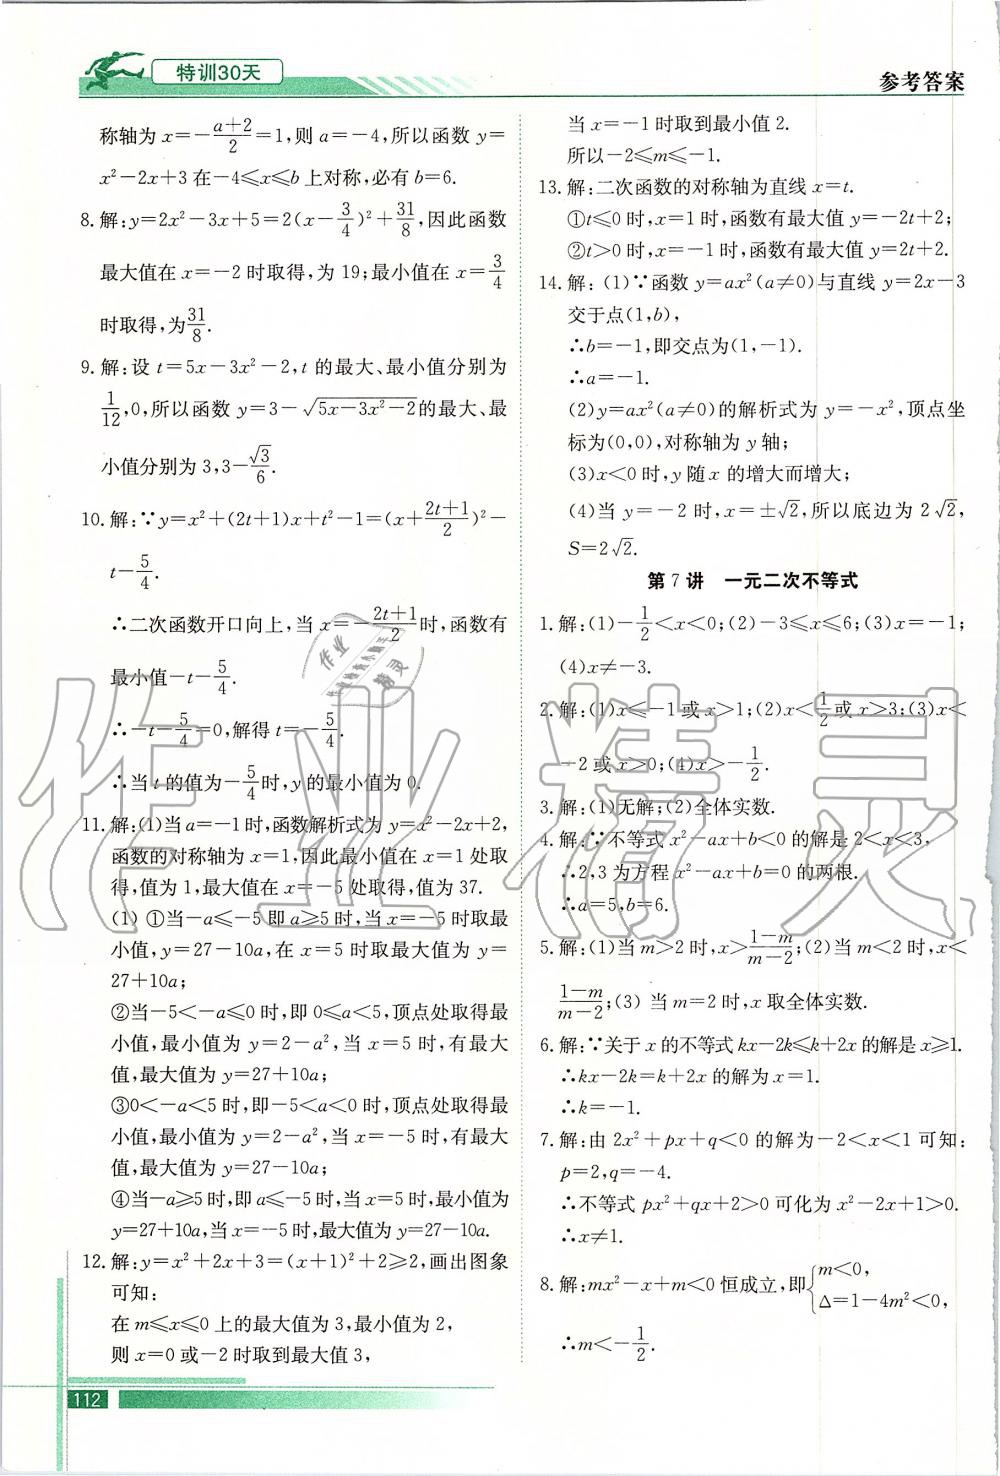 特训30天
参考答案
称轴为 x=-\frac{a+2}{2}=1,则 a=-4,所以函数 y=
x²-2x+3 在-4≤x≤b 上对称,必有 b=6.
8. 解:y=2x²-3x+5=2(x-\frac{3}{4})²+\frac{31}{8},因此函数
最大值在 x=-2 时取得,为 19;最小值在 x=\frac{3}{4}
时取得,为\frac{31}{8}.
9. 解:设 t=5x-3x²-2,t 的最大、最小值分别为
\frac{1}{12},0,所以函数 y=3-\sqrt{5x-3x²-2}的最大、最
小值分别为 3,3-\frac{\sqrt{3}}{6}.
10. 解:∵y=x²+(2t+1)x+t²-1=(x+\frac{2t+1}{2})²-
t-\frac{5}{4}.
∴二次函数开口向上,当 x=-\frac{2t+1}{2}时,函数有
最小值-t-\frac{5}{4}.
∴-t-\frac{5}{4}=0,解得 t=-\frac{5}{4}.
∴当 t 的值为-\frac{5}{4}时,y 的最小值为 0.
11. 解:(1)当 a=-1时,函数解析式为 y=x²-2x+2,
函数的对称轴为 x=1,因此最小值在 x=1 处取
得,值为 1,最大值在 x=-5 处取得,值为 37.
(1) ①当-a≤-5 即 a≥5 时,当 x=-5 时取最
小值,y=27-10a,在 x=5 时取最大值为 y=
27+10a;
②当-5<-a≤0 时,即 0≤a<5,顶点处取得最
小值,最小值为 y=2-a²,当 x=5 时,有最大
值,最大值为 y=27+10a;
③0<-a<5 时,即-5<a<0 时,顶点处取得最
小值,最小值为 y=2-a²,当 x=-5 时,有最大
值,最大值为 y=27-10a;
④当-a≥5 时,即 a≤-5 时,当 x=5 时,最小值为
y=27+10a,当 x=-5 时,最大值为 y=27-10a.
12. 解:y=x²+2x+3=(x+1)²+2≥2,画出图象
可知:
在 m≤x≤0 上的最大值为 3,最小值为 2,
则 x=0 或-2 时取到最大值 3,
112
当 x=-1 时取到最小值 2.
所以-2≤m≤-1.
13. 解:二次函数的对称轴为直线 x=t.
①t≤0 时,x=1 时,函数有最大值 y=-2t+2;
②t>0 时,x=-1 时,函数有最大值 y=2t+2.
14. 解:(1)∵函数 y=ax²(a≠0)与直线 y=2x-3
交于点(1,b),
∴b=-1,即交点为(1,-1).
∴a=-1.
(2)y=ax²(a≠0)的解析式为 y=-x²,顶点坐
标为(0,0),对称轴为 y 轴;
(3)x<0 时,y 随 x 的增大而增大;
(4)当 y=-2 时,x=±\sqrt{2},所以底边为 2\sqrt{2},
S=2\sqrt{2}.
第 7 讲 一元二次不等式
1. 解:(1)-\frac{1}{2}<x<0;(2)-3≤x≤6;(3)x=-1;
(4)x≠-3.
2. 解:(1)x≤-1或 x>1;(2)x<\frac{1}{2}或 x>3;(3)x<
-2或 x>0;(4)x>-\frac{1}{2}.
3. 解:(1)无解;(2)全体实数.
4. 解:∵不等式 x²-ax+b<0 的解是 2<x<3,
∴2,3 为方程 x²-ax+b=0 的两根.
∴a=5,b=6.
5. 解:(1)当 m>2 时,x>\frac{1-m}{m-2};(2)当 m<2 时,x<
\frac{1-m}{m-2};(3) 当 m=2 时,x 取全体实数.
6. 解:∵关于 x 的不等式 kx-2k≤k+2x 的解是 x≥1.
∴kx-2k=k+2x 的解为 x=1.
∴k=-1.
7. 解:由 2x²+px+q<0 的解为-2<x<1 可知:
p=2,q=-4.
∴不等式 px²+qx+2>0 可化为 x²-2x+1>0.
∴x≠1.
8. 解:mx²-x+m<0 恒成立,即{m<0,
Δ=1-4m²<0,
∴m<-\frac{1}{2}.
作业精灵